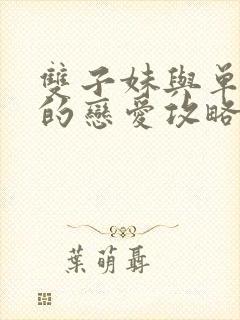 雙子妹與單
的戀愛攻略
葉萌聶